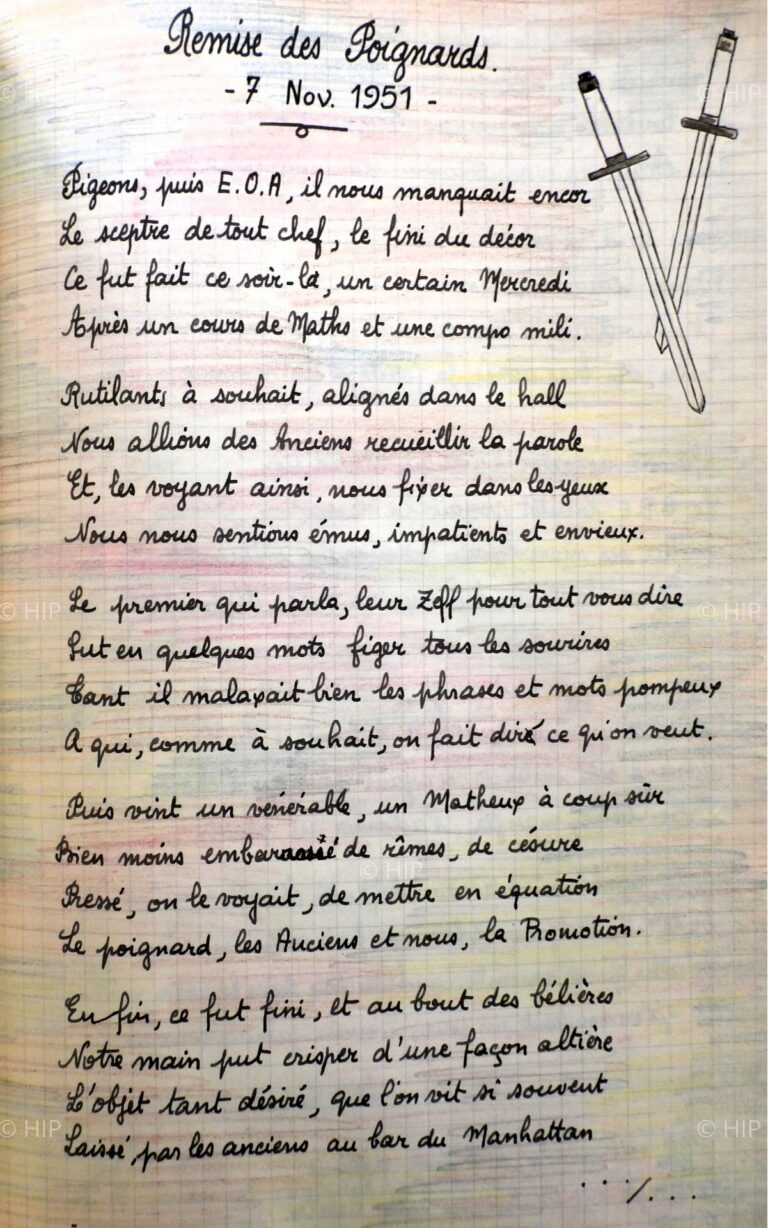 Remise des Poignards.
- 7 Nov. 1951 -
Pigeons, puis E.O.A, il nous manquait encor
Le sceptre de tout chef, le fini du décor
Ce fut fait ce soir-là, un certain Mercredi
Après un cours de Maths et une compo mili.
Rutilants à souhait, alignés dans le hall
Nous allions des Anciens recueillir la parole
Et, les voyant ainsi, nous fixer dans les yeux
Nous nous sentions émus, impatients et envieux.
Le premier qui parla, leur Zeff pour tout vous dire
Sut en quelques mots figer tous les sourires
Tant il malaxait bien les phrases et mots pompeux
A qui, comme à souhait, on fait dire ce qu'on veut.
Puis vint un vénérable, un Matheux à coup sûr
Bien moins embarassé de rîmes, de césure
Pressé, on le voyait, de mettre en équation
Le poignard, les Anciens et nous, la Promotion.
En fin, ce fut fini, et au bout des bélières
Notre main put crisper d'une façon altière
L'objet tant désiré, que l'on vit si souvent
Laissé, par les anciens au bar du Manhattan
.../...
© HIP
© HIP
© HIP
© HIP
© HIP
© HIP
© HIP